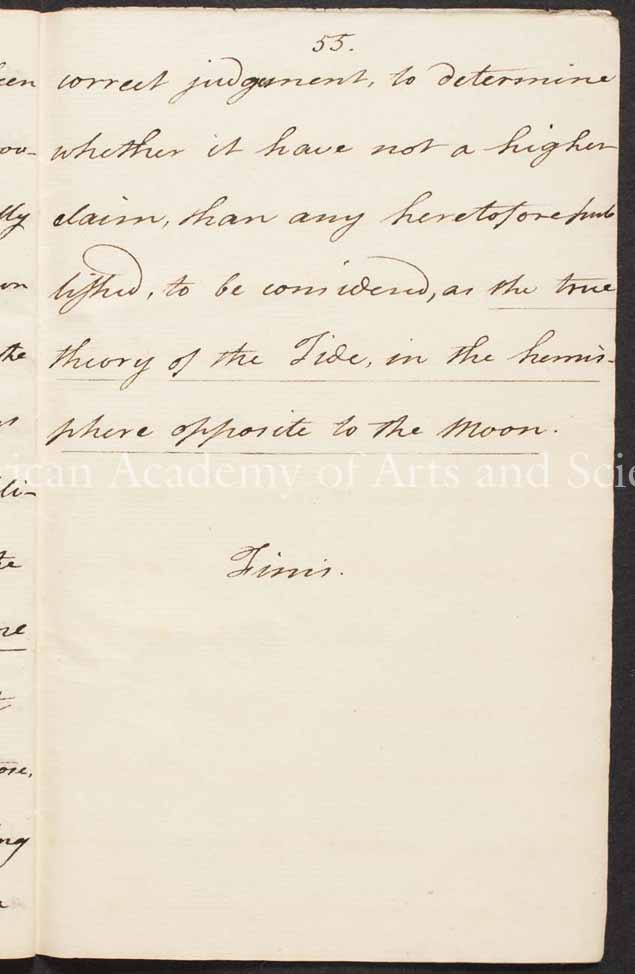 55.
correct judgement, to determine
whether it have not a higher
claim, than any heretofore pub
lished, to be considered, as the true
theory of the Tide, in the hemis-
phere opposite to the Moon.
American Academy of Arts and Scie
Finis.